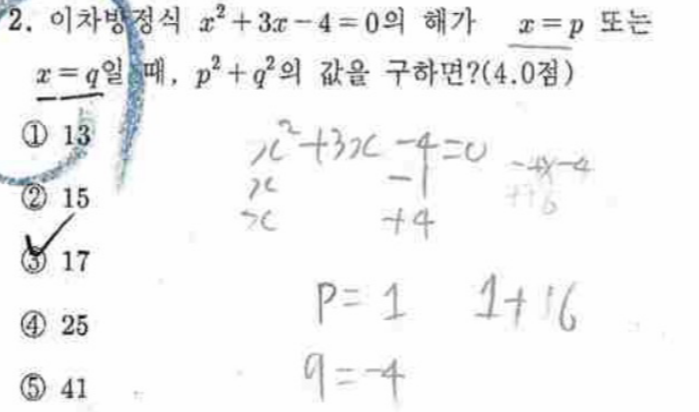 2. 이차방정식 x²+3x-4=0의 해가 x=p 또는
x=q일 때, p²+q²의 값을 구하면?(4.0점)
① 13
② 15
③ 17
④ 25
⑤ 41
x²+3x-4=0
x -1
x +4
-4x-4
p=1 1+16
q=-4